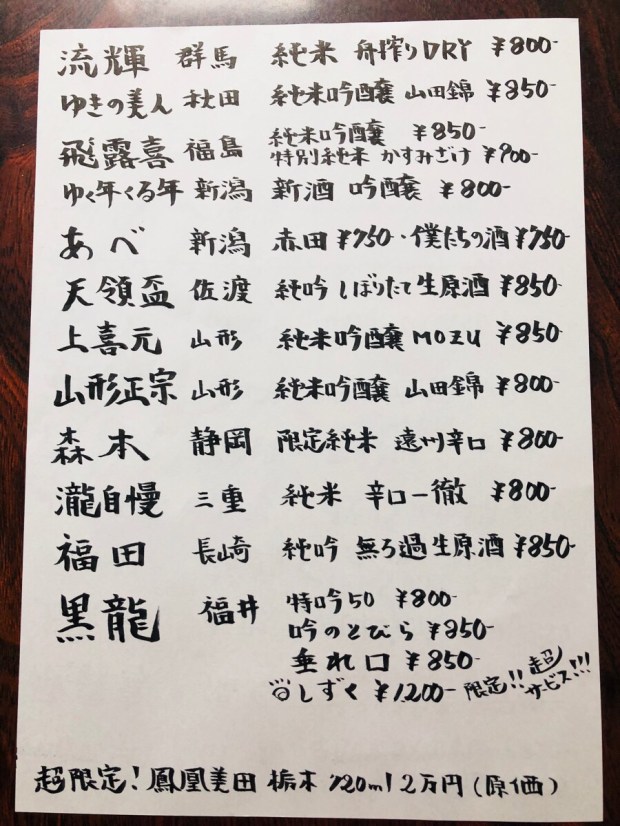 流輝 群馬 純米 舟搾りDRY ¥800-
ゆきの美人 秋田 純米吟醸 山田錦 ¥850-
飛露喜 福島 純米吟醸 ¥850-
特別純米 かすみざけ ¥900-
ゆく年くる年 新潟 新酒 吟醸 ¥800-
あべ 新潟 赤田 ¥750・僕たちの酒 ¥750-
天領盃 佐渡 純吟 しぼりたて生原酒 ¥850-
上喜元 山形 純米吟醸 MOZU ¥850-
山形正宗 山形 純米吟醸 山田錦 ¥800-
森本 静岡 限定純米 遠州辛口 ¥800-
瀧自慢 三重 純米 辛口一徹 ¥800-
福田 長崎 純吟 無ろ過生原酒 ¥850-
黒龍 福井 特吟50 ¥800-
吟のとびら ¥850-
垂れ口 ¥850-
しずく ¥1,200- 限定!! 超サービス!!!
超限定! 鳳凰美田 栃木 720ml 2万円(原価)